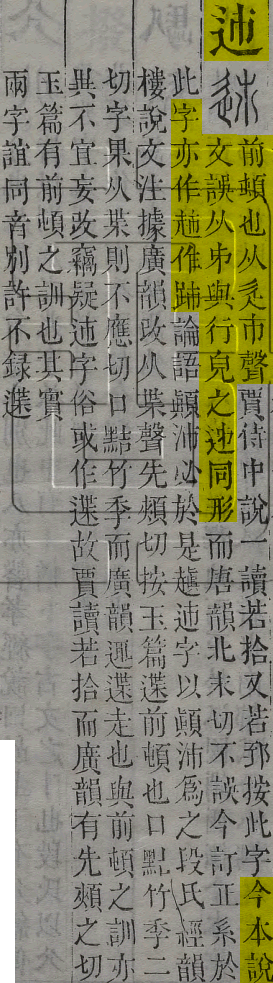 𨒪 前頓也从辵巿聲賈侍中說一讀若拾又若郅按此字今本說
文誤从𠂔與行皃之迹同形而唐韻北末切不誤今訂正系於
此字亦作䞯作䟛論語顚沛必於是𧽼𨒪字以顚沛爲之段氏經韻
樓說文注據廣韻改从枼聲先頰切按玉篇䢡前頓也口點竹季二
切字果从枼則不應切口點竹季而廣韻迺䢡走也與前頓之訓亦
異不宜妄改竊疑𨒪字俗或作䢡故賈讀若拾而廣韻有先頰之切
玉篇有前頓之訓也其實
兩字誼同音別許不錄䢡